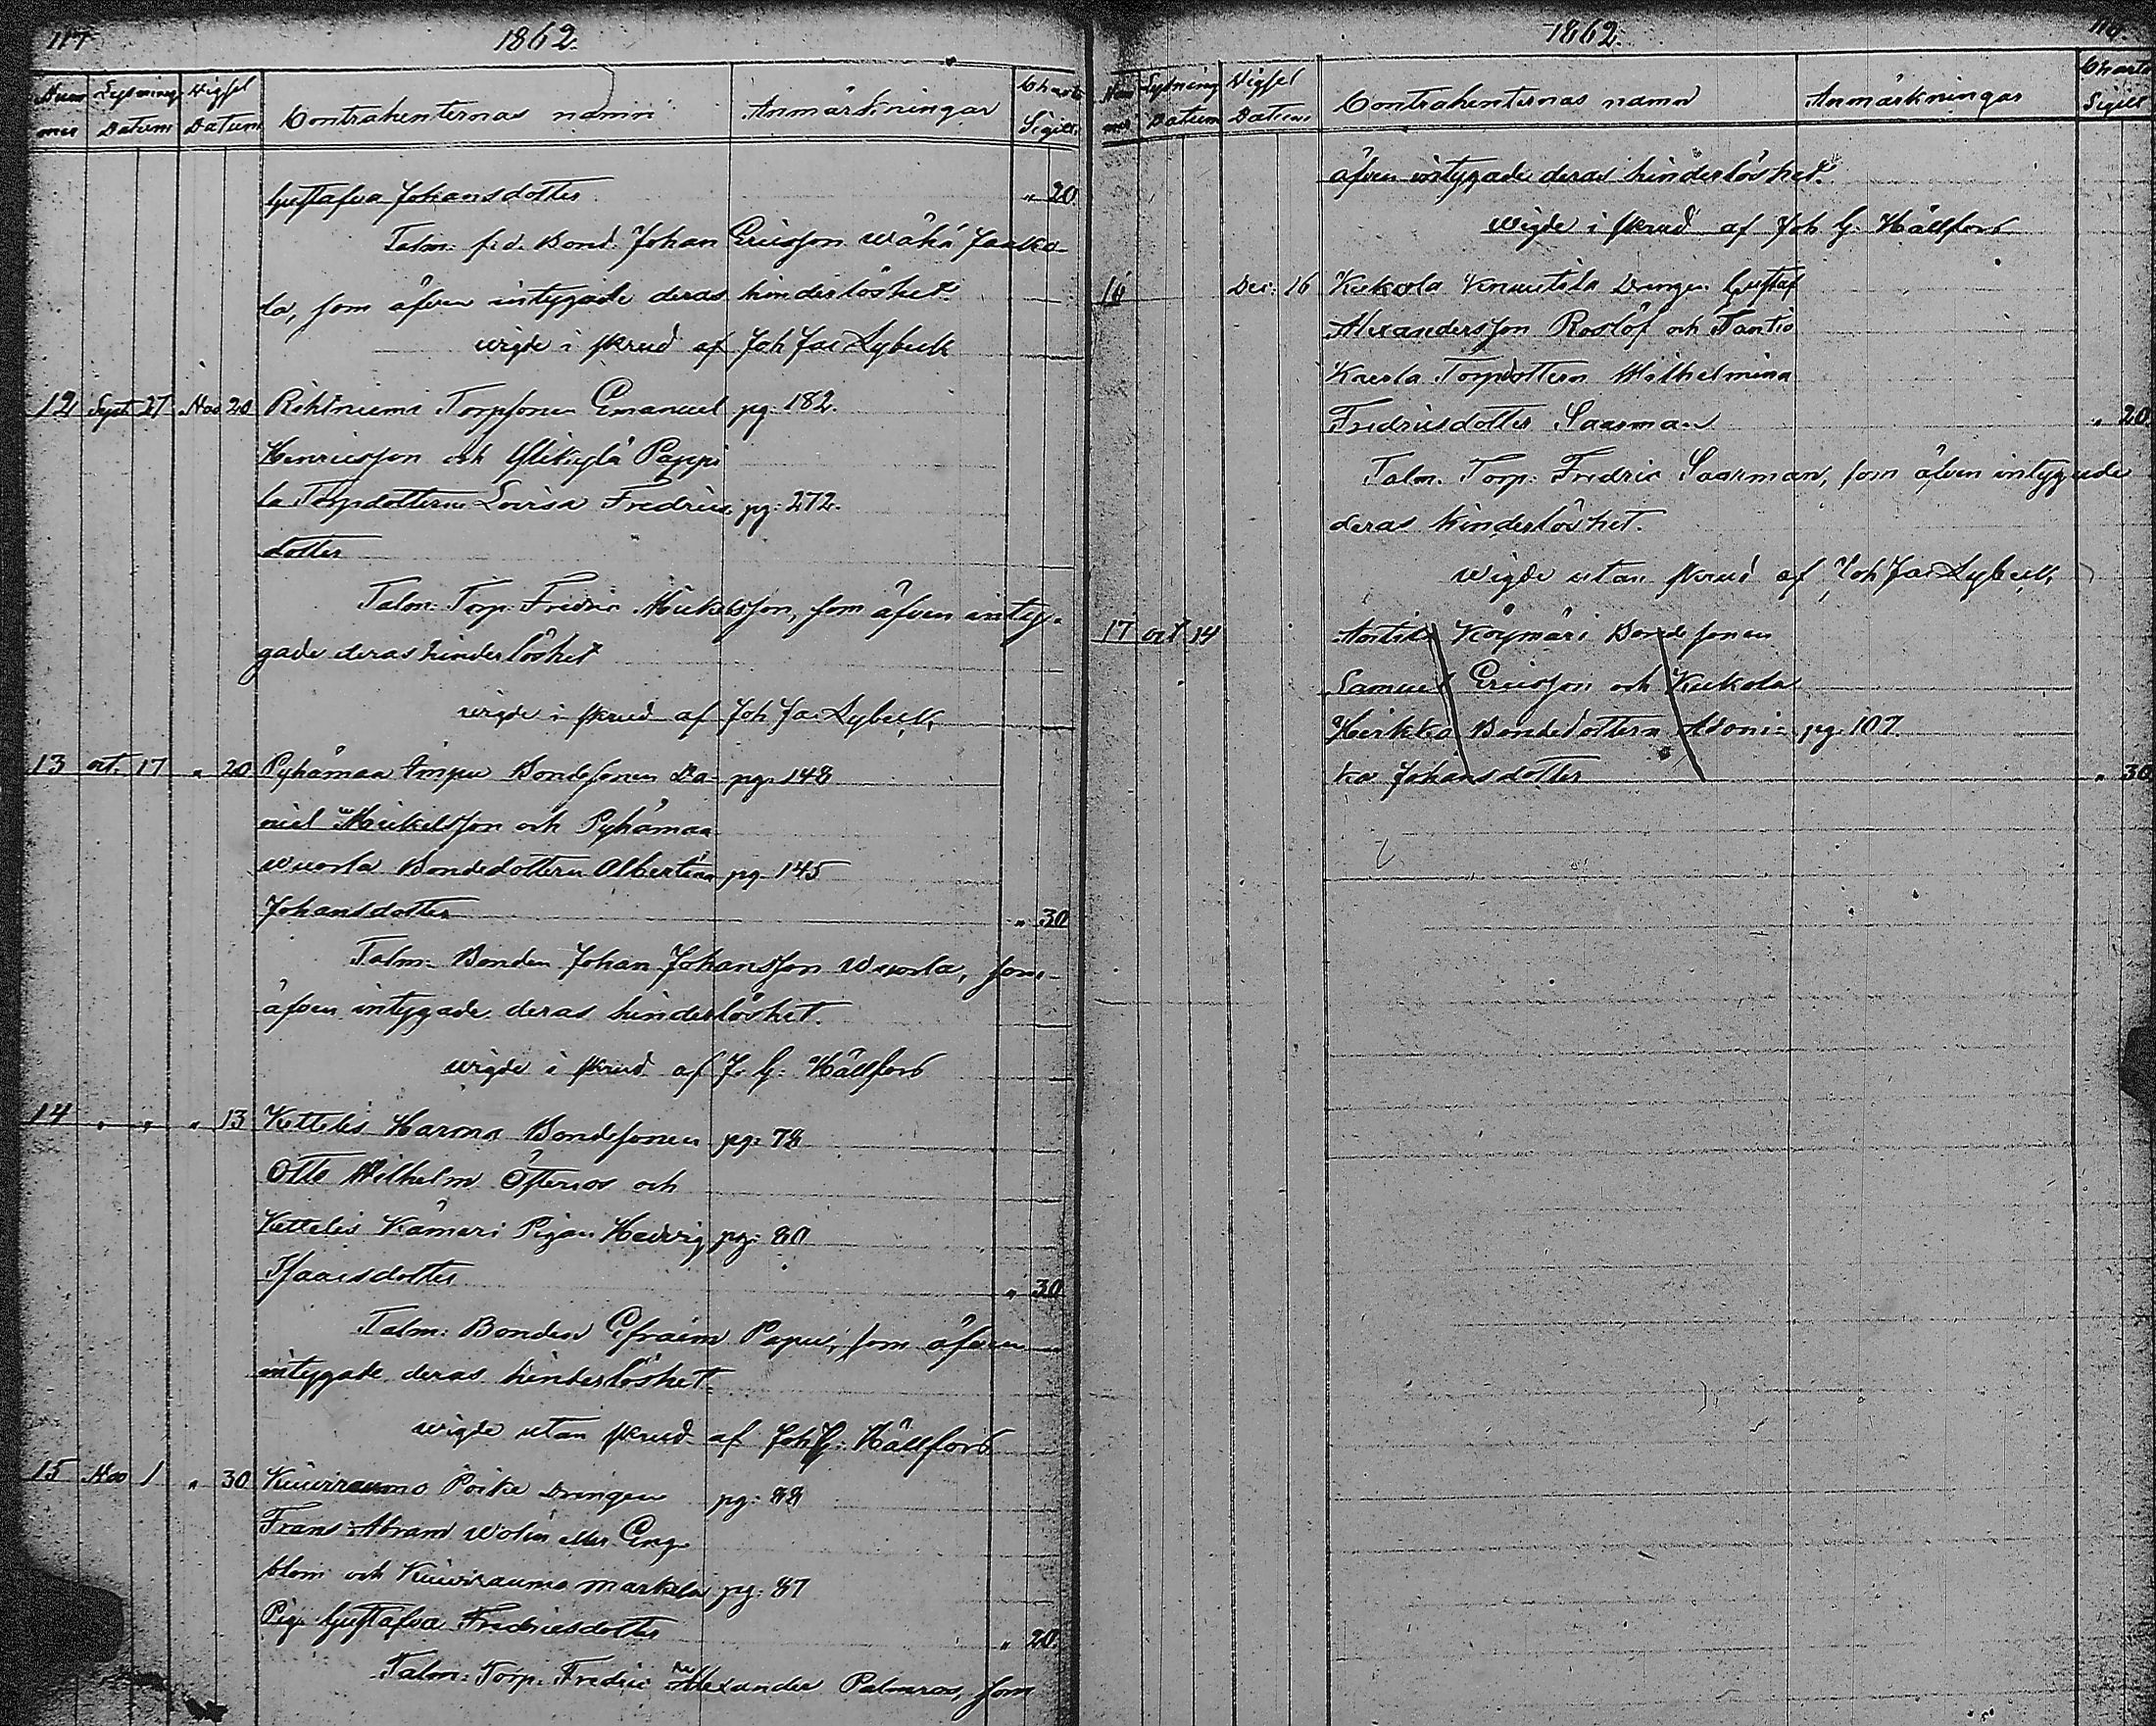 117
1862.
Num
mer
Lysnings
Datum
Vigsel
Datum
Contrahenternas namn
Anmärkningar
Charta
Sigill.
Gustafva Johansdotter " 20.
Talm: f.d. Bond. Johan Ericsson Wähä Jaakko-
la, som äfven intygade deras hinderlöshet.
wigde i skrud af Joh Jac Lybeck
12 Sept 27 Nov 20 Rihtniemi Torpsonen Emanuel pg: 182.
Henricsson och Ylikylä Pappi
la Torpdottern Lovisa Fredrics pg: 272.
dotter
Talm: Torp: Fredric Mickelsson, som äfven inty-
gade deras hinderlöshet
wigde i skrud af Joh Jac Lybeck
13 oct. 17 " 20 Pyhämaa Ampu Bondesonen Da- pg: 148
niel Mickelsson och Pyhämaa
Wuorla Bondedottern Albertina pg. 145
Johansdotter " 30
Talm: Bonden Johan Johansson Wuorla, som
äfven intygade deras hinderlöshet.
wigde i skrud af J. G: Hällfors
14 " " " 13 Kettelis Harma Bondesonen pg: 78
Otto Wilhelm och
Kettelis Kämäri Pigan Hedvig pg: 80
Isaacsdotter " 30
Talm: Bonden Efraim Papu, som äfven
intygade deras hinderlöshet.
wigde utan skrud af Joh G: Hällfors
15 Nov 1 " 30 Kuivrauma Poika Drengen pg: 88
Frans Abram Wolin eller Eng-
blom och Kuivirauma Markula pg: 87
Pig. Gustafva Fredricsdotter " 20.
Talm: Torp. Fredric Alexander Palmros, som
1862.
118
Num
mer
Lysning
Datum
Vigsel
Datum
Contrahenternas namn
Anmärkningar
Charta
Sigill
äfven intygade deras hinderlöshet.
wigde i skrud af Joh G. Hällfors
16 Dec: 16 Kukola Knuutila Drengen Gustaf
Alexandersson Roslöf och Santio
Torpdottern Wilhelmina
Fredricsdotter Saarman " 20
Talm. Torp: Fredric Saarman, som äfven intygade
deras hinderlöshet.
wigde utan skrud af Joh Jac Lybeck
17 oct 14 Anttila Köymäri Bondesonen
Samuel Ericsson och Kukola
Heikkilä Bondedottern Adoni- pg. 107.
ka Johansdotter " 30